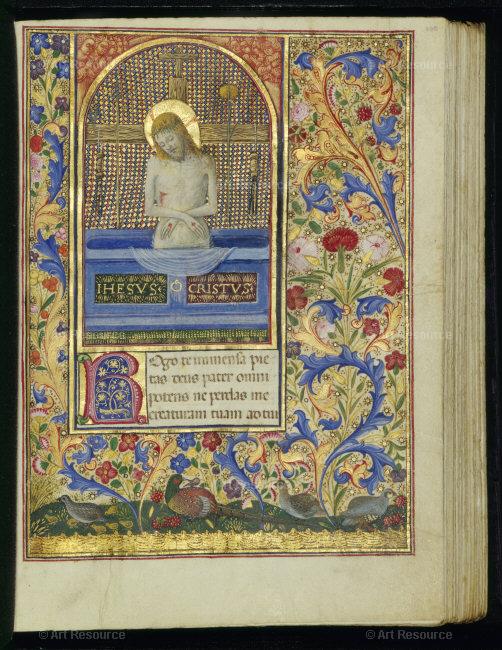 IHESVS: O CRISTVS:
Rogo te immensa pie
tas deus pater omni
potens ne perdas me
creaturam tuam ad tui
© Art Resource
© Art Resource